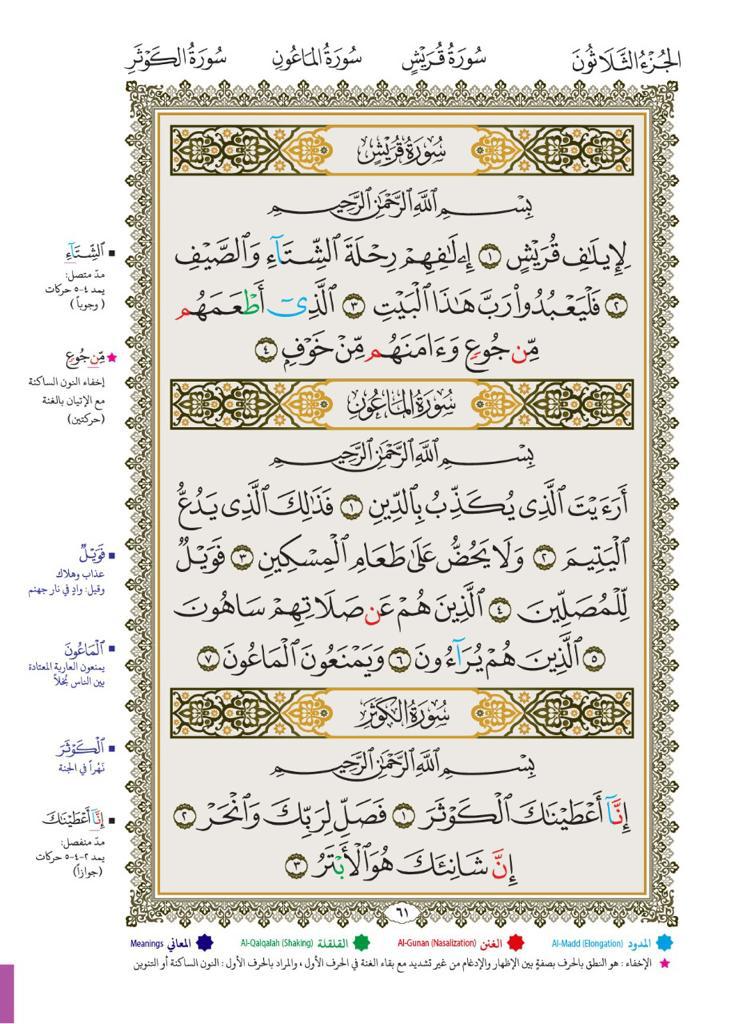 الجُزْءُ الثَّلَاثُونَ سُورَةُ قُرَيْشٍ سُورَةُ المَاعُونِ سُورَةُ الكَوْثَرِ
سُورَةُ قُرَيْشٍ
بِسْمِ ٱللَّهِ ٱلرَّحْمَٰنِ ٱلرَّحِيمِ
لِإِيلَٰفِ قُرَيْشٍ ١ إِۦلَٰفِهِمْ رِحْلَةَ ٱلشِّتَآءِ وَٱلصَّيْفِ
٢ فَلْيَعْبُدُوا۟ رَبَّ هَٰذَا ٱلْبَيْتِ ٣ ٱلَّذِىٓ أَطْعَمَهُم
مِّن جُوعٍ وَءَامَنَهُم مِّنْ خَوْفٍ ٤
سُورَةُ المَاعُونِ
بِسْمِ ٱللَّهِ ٱلرَّحْمَٰنِ ٱلرَّحِيمِ
أَرَءَيْتَ ٱلَّذِى يُكَذِّبُ بِٱلدِّينِ ١ فَذَٰلِكَ ٱلَّذِى يَدُعُّ
ٱلْيَتِيمَ ٢ وَلَا يَحُضُّ عَلَىٰ طَعَامِ ٱلْمِسْكِينِ ٣ فَوَيْلٌ
لِّلْمُصَلِّينَ ٤ ٱلَّذِينَ هُمْ عَن صَلَاتِهِمْ سَاهُونَ
٥ ٱلَّذِينَ هُمْ يُرَآءُونَ ٦ وَيَمْنَعُونَ ٱلْمَاعُونَ ٧
سُورَةُ الكَوْثَرِ
بِسْمِ ٱللَّهِ ٱلرَّحْمَٰنِ ٱلرَّحِيمِ
إِنَّآ أَعْطَيْنَٰكَ ٱلْكَوْثَرَ ١ فَصَلِّ لِرَبِّكَ وَٱنْحَرْ ٢
إِنَّ شَانِئَكَ هُوَ ٱلْأَبْتَرُ ٣
٦١
ٱلشِّتَآءِ
مدّ متصل:
يمد ٤-٥ حركات
(وجوباً)
مِّن جُوعٍ
إخفاء النون الساكنة
مع الإتيان بالغنة
(حركتين)
فَوَيْلٌ
عذاب وهلاك
وقيل: وادٍ في نار جهنم
ٱلْمَاعُونَ
يمنعون العارية المعتادة
بين الناس بُخلاً
ٱلْكَوْثَرَ
نَهْراً في الجنة
إِنَّآ أَعْطَيْنَٰكَ
مدّ منفصل:
يمد ٢-٤-٥ حركات
(جوازاً)
المدود Al-Madd (Elongation) الغنن Al-Gunan (Nasalization) القلقلة Al-Qalqalah (Shaking) المعاني Meanings
الإخفاء : هو النطق بالحرف بصفةٍ بين الإظهار والإدغام من غير تشديد مع بقاء الغنة في الحرف الأول ، والمراد بالحرف الأول : النون الساكنة أو التنوين